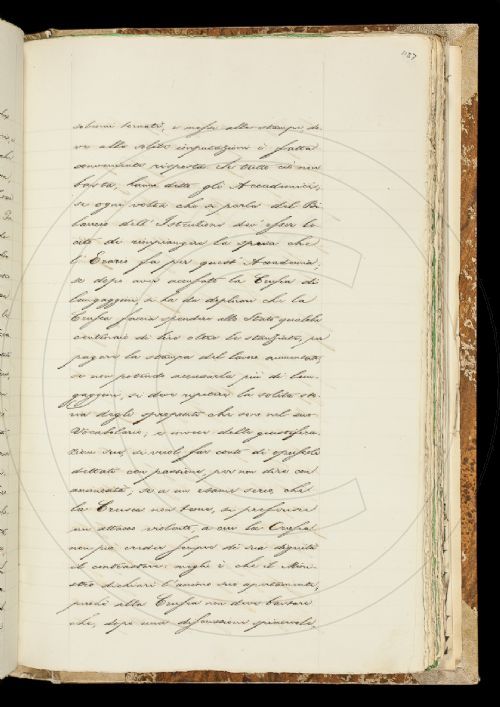 1187
solenni tornate, e messe alle stampe do-
ve alle solite imputazioni è fatta
conveniente risposta. Se tutto ciò non
basta, hanno detto gli Accademici,
se ogni volta che si parla del Bi-
lancio dell'Istruzione dev'esser le-
cito di rimpiangere la spesa che
l'Erario fa per quest'Accademia;
se dopo aver accusata la Crusca di
lungaggini, si ha da deplorare che la
Crusca faccia spendere allo Stato qualche
centinaio di lire oltre lo stanziato, per
pagare la stampa del lavoro aumentato;
se non potendo accusarla più di lun-
gaggini, si deve ripetere la solita sto-
ria degli spropositi che sono nel suo
Vocabolario; e invece delle giustifica-
zioni sue, si vuol far conto di opuscoli
dettati con passione, per non dire con
animosità; se a un esame serio, che
la Crusca non teme, si preferisce
un attacco violento, a cui la Crusca
non può creder sempre di sua dignità
il contrastare: meglio è che il Mini-
stro dichiari l'animo suo apertamente;
perché alla Crusca non deve bastare
che, dopo una discussione spiacevole,